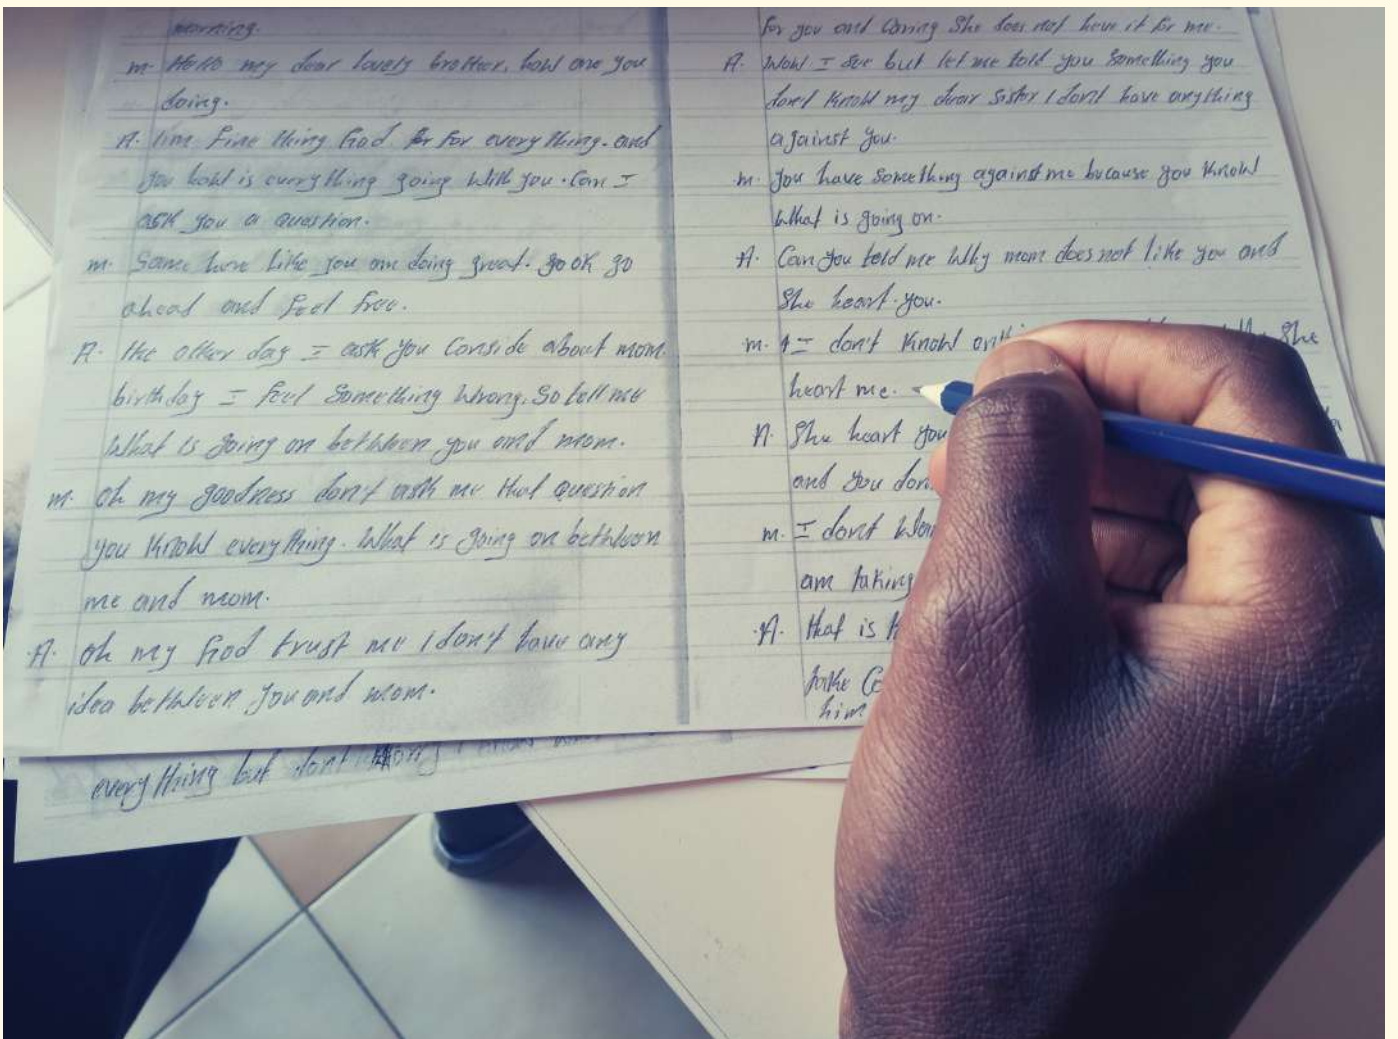 morning.
m. Hello my dear lovely brother, how are you
doing.
A. I'm fine thing God for for every thing. and
you how is every thing going with you. Can I
ask you a question.
m. Same here like you am doing great. so ok go
ahead and feel free.
A. the other day I ask you Conside about mom
birthday I feel Something wrong. So tell me
what is going on between you and mom.
m. oh my goodness don't ask me that question
you know every thing. what is going on between
me and mom.
A. oh my God trust me I don't have any
idea between you and mom.
every thing but dont
for you and Caring She does not have it for me.
A. Wow I see but let me told you Something you
don't know my dear Sister I don't have any thing
against you.
m. you have Something against me because you know
what is going on.
A. Can you told me why mom does not like you and
She heart you.
m. I don't know She
heart me.
A. She heart you
and you
m. I don't
am taking
A. that is
him